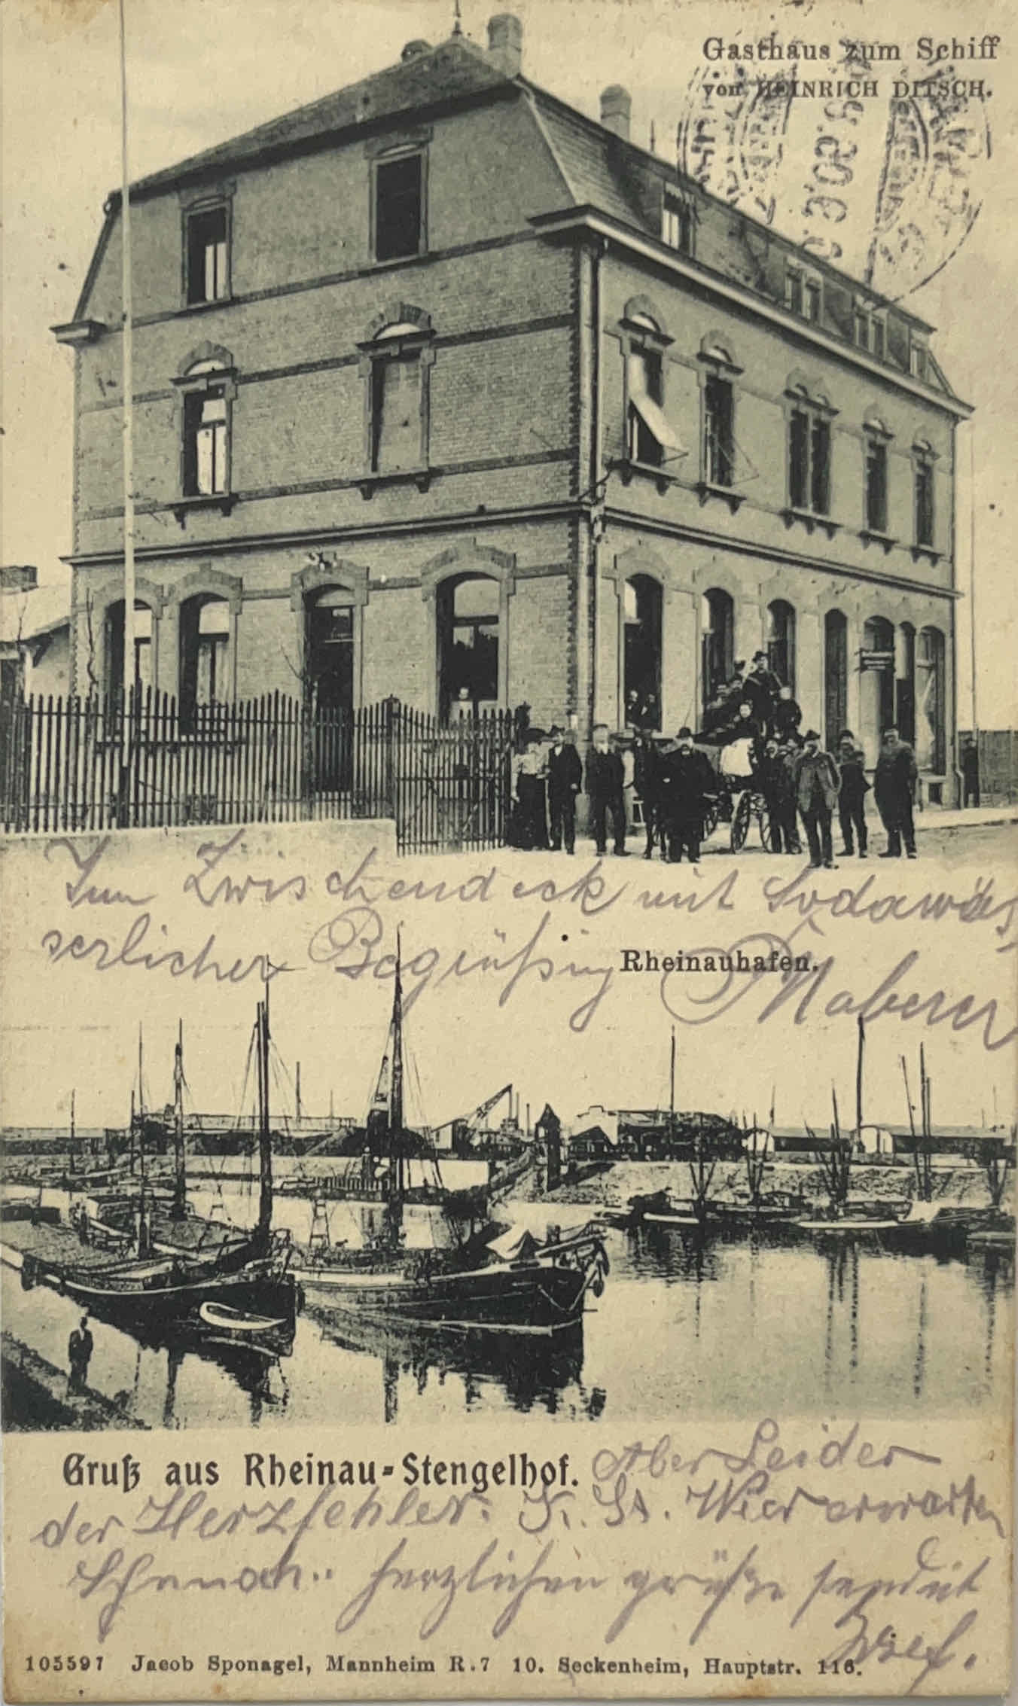 Gasthaus zum Schiff
von HEINRICH DITSCH.
Zwischendeck mit Sodawäs
serlicher Begrüßung
Rheinauhafen.
Gruß aus Rheinau-Stengelhof.
Aber Leider
der Herzfehler. K. St. Wier erwarten
herzlichen grüße sendet
105597 Jacob Sponagel, Mannheim R.7 10. Seckenheim, Hauptstr. 116.